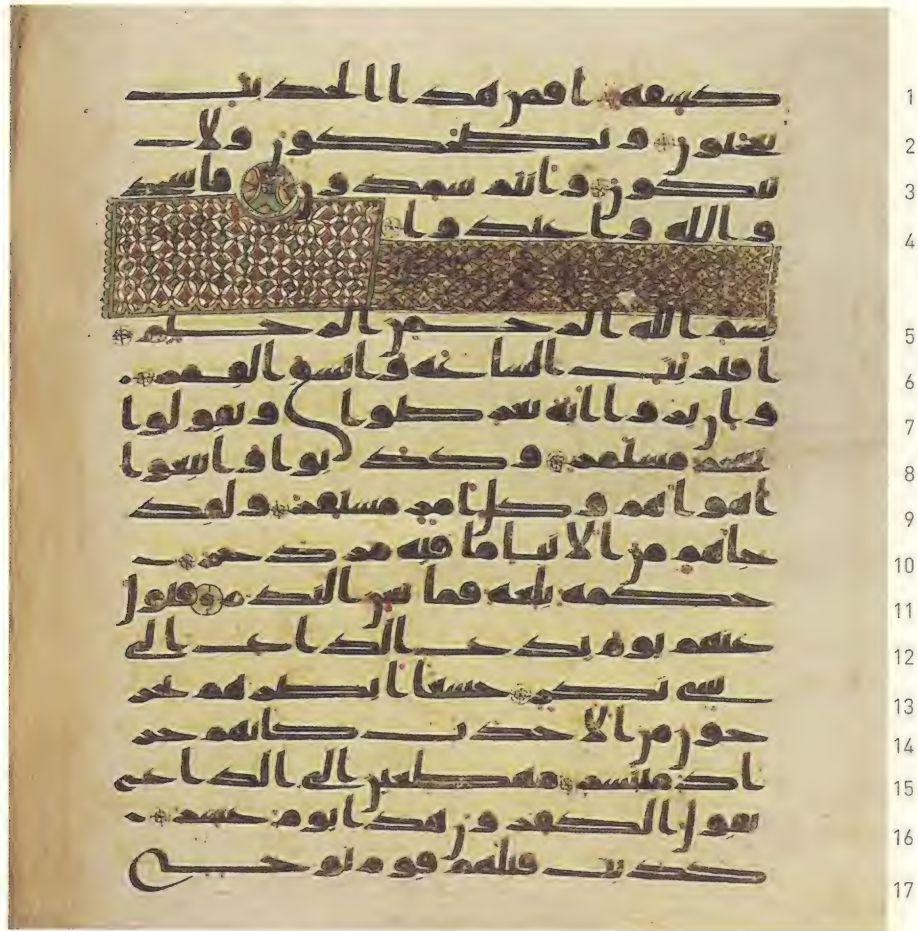 كشفة افمن هذا الحديث 1
تعجبون وتضحكون ولا 2
تبكون وانتم سمدون فاسجد 3
وا لله واعبدوا 4
بسم الله الرحمن الرحيم 5
اقتربت الساعة وانشق القمر 6
وان يروا اية يعرضوا ويقولوا 7
سحر مستمر وكذبوا واتبعوا 8
اهواهم وكل امر مستقر ولقد 9
جاهم من الانبا ما فيه مزدجر 10
حكمة بلغة فما تغن النذر فتول 11
عنهم يوم يدع الداع الى 12
شي نكر خشعا ابصرهم يخر 13
جون من الاجداث كانهم جر 14
اد منتشر مهطعين الى الداع 15
يقول الكفرون هذا يوم عسر 16
كذبت قبلهم قوم نوح 17